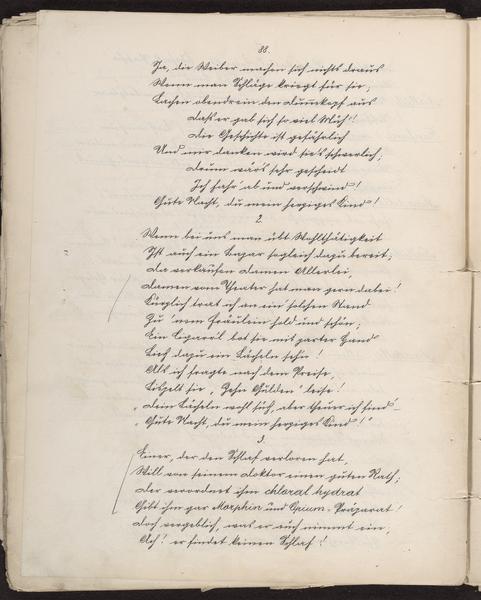 88.
Ja, die Weiber machen sich nichts draus
Wenn man Schläge kriegt für sie;
Lachen obendrein den Dummkopf aus
Dass er gab sich so viel Müh'!
Die Geschichte ist gefährlich
Und mir danken wird sie's schwerlich;
Drum wär's sehr gescheidt
Ich fahr' ab und verschwind'!
Gute Nacht, du mein herziges Kind!
2.
Wenn bei uns man übt Wohlthätigkeit
Ist auch ein Bazar sogleich dazu bereit;
Da verkaufen Damen Allerlei,
Damen vom Theater hat man gern dabei!
Kürzlich trat ich an ein' solchen Stand
Zu 'nem Fräulein hold und schön;
Ein Cigarr'l bot sie mit zarter Hand
Ließ dazu ein Lächeln seh'n!
Als ich fragte nach dem Preise,
Lispelt sie „Zehn Gulden" leise!
„Dein Lächeln wohl süß, aber theuer ich find' –
„Gute Nacht, du mein herziges Kind!"
3.
Einer, der den Schlaf verloren hat,
Will von seinem Doktor einen guten Rath;
Der verordnet ihm chloral hydrat
Gibt ihm gar Morphin und Opium-Präparat!
Doch vergeblich, was er auch nimmt ein,
Ach! er findet keinen Schlaf!